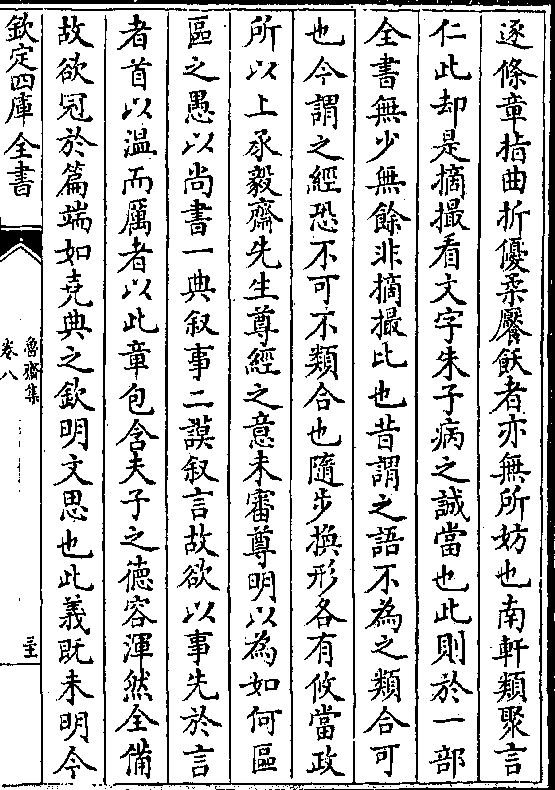 逐條章指曲折優柔饜飫者亦無所妨也南軒類聚言
仁此却是摘撮看文字朱子病之誠當也此則於一部
全書無少無餘非摘撮比也昔謂之語不為之類合可
也今謂之經恐不可不類合也隨步換形各有攸當政
所以上承毅齋先生尊經之意未審尊明以為如何區
區之愚以尚書一典叙事二謨叙言故欲以事先於言
者首以溫而厲者以此章包含夫子之德容渾然全備
故欲冠於篇端如堯典之欽明文思也此義既未明今
欽定四庫全書
魯齋集
卷八